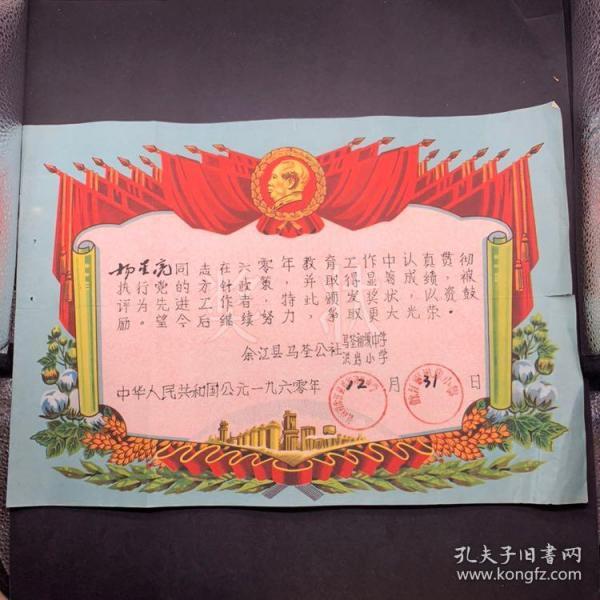 杨星亮同志在六零年教育工作中认真贯彻
执行党的方针政策，并取得显著成绩，被
评为先进工作者，特此颁发奖状，以资鼓
励。望今后继续努力，争取更大光荣。
余江县马荃公社
马荃初级中学
洪岩小学
中华人民共和国公元一九六零年12月31日
孔夫子旧书网
www.kongfz.com